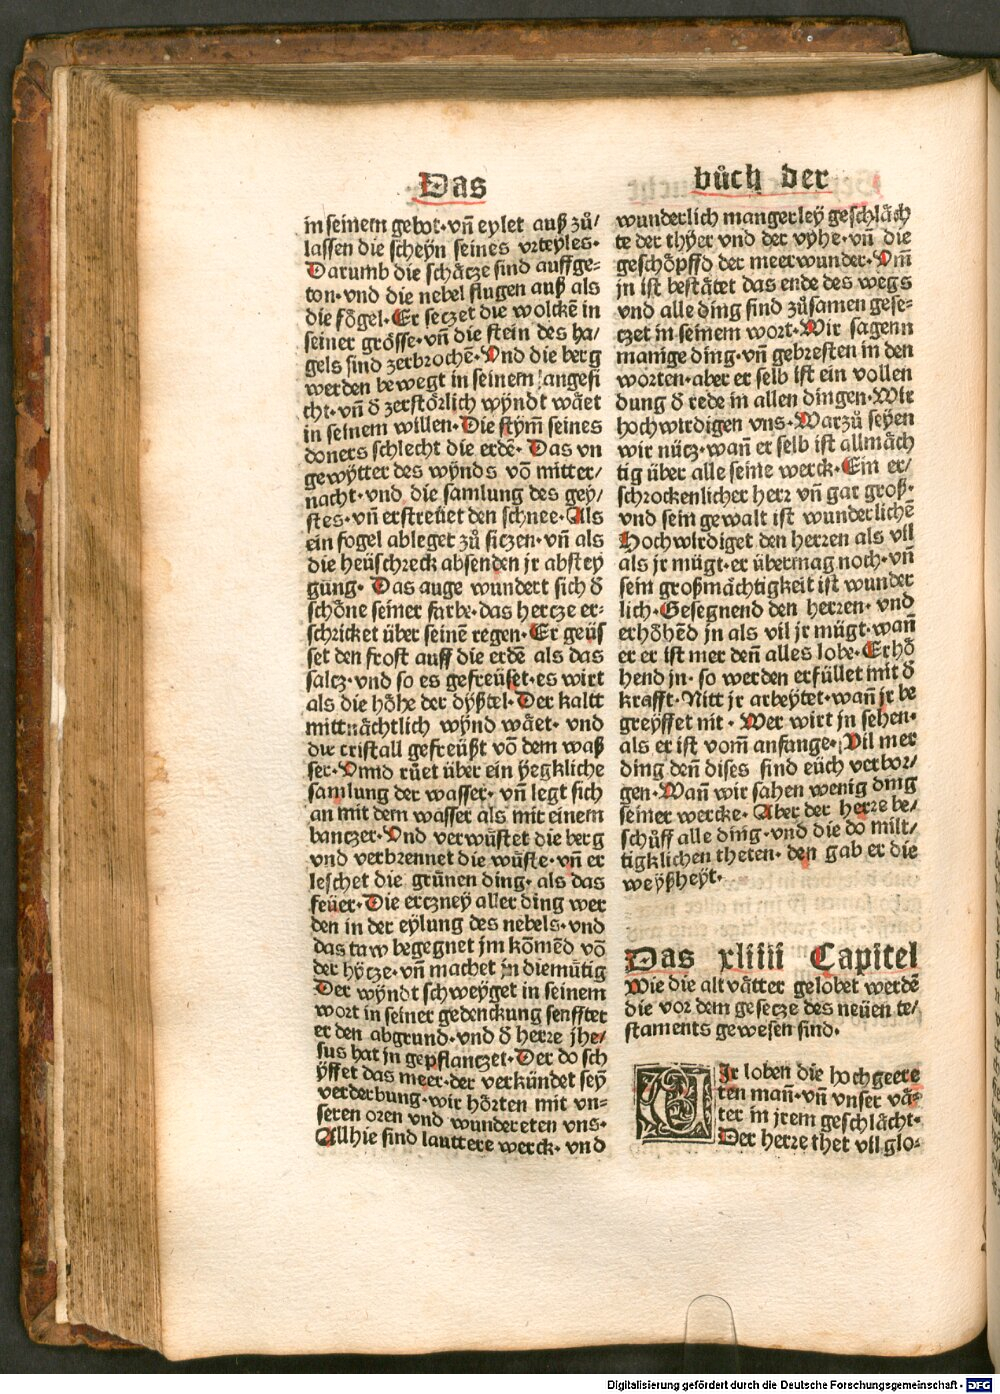 Das
in seinem gebot·vn̄ eylet auß zů/
lassen die scheyn seines vrteyles·
Darumb die schätze sind auffge⸗
ton·vnd die nebel flugen auß als
die fögel·Er seczet die wolckē in
seiner grösse·vn̄ die stein des ha⸗
gels sind zerbrochē·Vnd die berg
werden bewegt in seinem angesi
cht·vn̄ ð zerstörlich wyndt wäet
in seinem willen·Die stym̄ seines
doners schlecht die erdē·Das vn
gewytter des wynds vō mitter/
nacht·vnd die samlung des gey/
stes·vn̄ erstreüet den schnee·Als
ein fogel ableget zů siczen·vn̄ als
die heüschreck absenden jr abstey
gung·Das auge wundert sich ð
schöne seiner farbe·das hercze er⸗
schricket über seinē regen·Er geüs
set den frost auff die erdē als das
salcz·vnd so es gefreüset·es wirt
als die höhe der dyßtel·Der kaltt
mittnächtlich wynd wäet·vnd
die cristall gefreüßt vō dem waß
ser·Vnnd růet über ein yegkliche
samlung der wasser·vn̄ legt sich
an mit dem wasser als mit einem
banczer·Vnd verwüstet die berg
vnd verbrennet die wüste·vn̄ er
leschet die grünen ding·als das
feüer·Die erczney aller ding wer
den in der eylung des nebels·vnd
das taw begegnet jm kōmēd vō
der hycze·vn̄ machet jn diemütig
Der wyndt schweyget in seinem
wort in seiner gedenckung senffter
er den abgrund·vnd ð herre jhe⸗
sus hat jn gepflanczet·Der do sch
yffet das meer·der verkündet sey
verderbung·wir hörten mit vn⸗
seren oren vnd wundereten vns·
Allhie sind lauttere werck·vnd
bůch der
wunderlich mangerley geschläch
te der thyer vnd der vyhe·vn̄ die
geschöpffd der meerwunder·Vm̄
jn ist bestätet das ende des wegs
vnd alle ding sind zůsamen gese⸗
czet in seinem wort·Wir sagenn
manige ding·vn̄ gebresten in den
worten·aber er selb ist ein vollen
dung ð rede in allen dingen·Wir
hochwirdigen vns·Warzů seyen
wir nücz·wan̄ er selb ist allmäch
tig über alle seine werck·Ein er/
schrockenlicher herr vn̄ gar groß·
vnd sein gewalt ist wunderlichē
Hochwirdiget den herren als vil
als jr mügt·er übermag noch·vn̄
sein großmächtigkeit ist wunder
lich·Gesegnend den herren·vnd
erhöhēd jn als vil jr mügt·wan̄
er er ist mer den̄ alles lobe·Erhö
hend jn·so werden erfüllet mit ð
krafft·Nitt jr arbeytet·wan̄ jr be
greyffet nit·Wer wirt jn sehen·
als er ist vom̄ anfange·Vil mer
ding den̄ dises sind eüch verbor/
gen·Wan̄ wir sahen wenig ding
seiner wercke·Aber der herre be/
schůff alle ding·vnd die do milt/
tigklichen theten·den gab er die
weyßheyt·
Das xliiii Capitel
Wie die altvätter gelobet werdē
die vor dem gesecze des neüen te/
staments gewesen sind·
WIr loben die hochgeere
ten man̄·vn̄ vnser vä⸗
ter in jrem geschlächt·
Der herre thet vil glo⸗
Digitalisierung gefördert durch die Deutsche Forschungsgemeinschaft - DFG